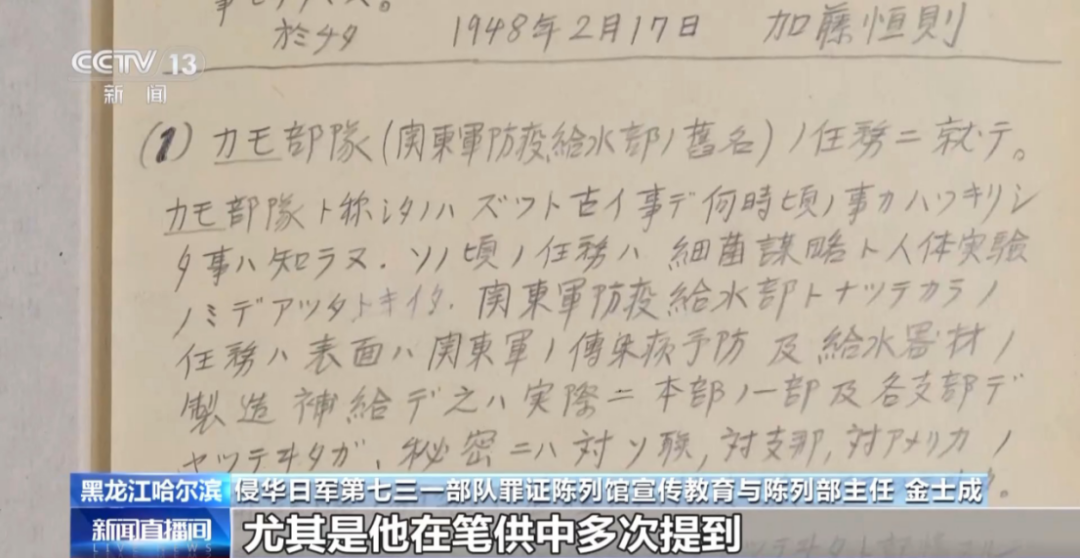 於チタ 1948年2月17日 加藤恒則
CCTV 13
新闻
(1) カモ部隊(関東軍防疫給水部ノ舊名)ノ任務ニ就テ。
カモ部隊ト称シタノハ ズット古イ事デ何時頃ノ事カハッキリシ
タ事ハ知ラヌ. ソノ頃ノ任務ハ 細菌謀略ト人体実験
ノミデアッタトキイタ. 関東軍防疫給水部トナッテカラノ
任務ハ 表面ハ関東軍ノ傳染病予防 及 給水器材ノ
製造 補給デ之ハ実際ニ本部ノ一部及各支部デ
ヤッテヰタガ、秘密ニハ対ソ聯,対支那,対アメリカノ
黑龙江哈尔滨 侵华日军第七三一部队罪证陈列馆宣传教育与陈列部主任 金士成
新闻直播间
尤其是他在笔供中多次提到